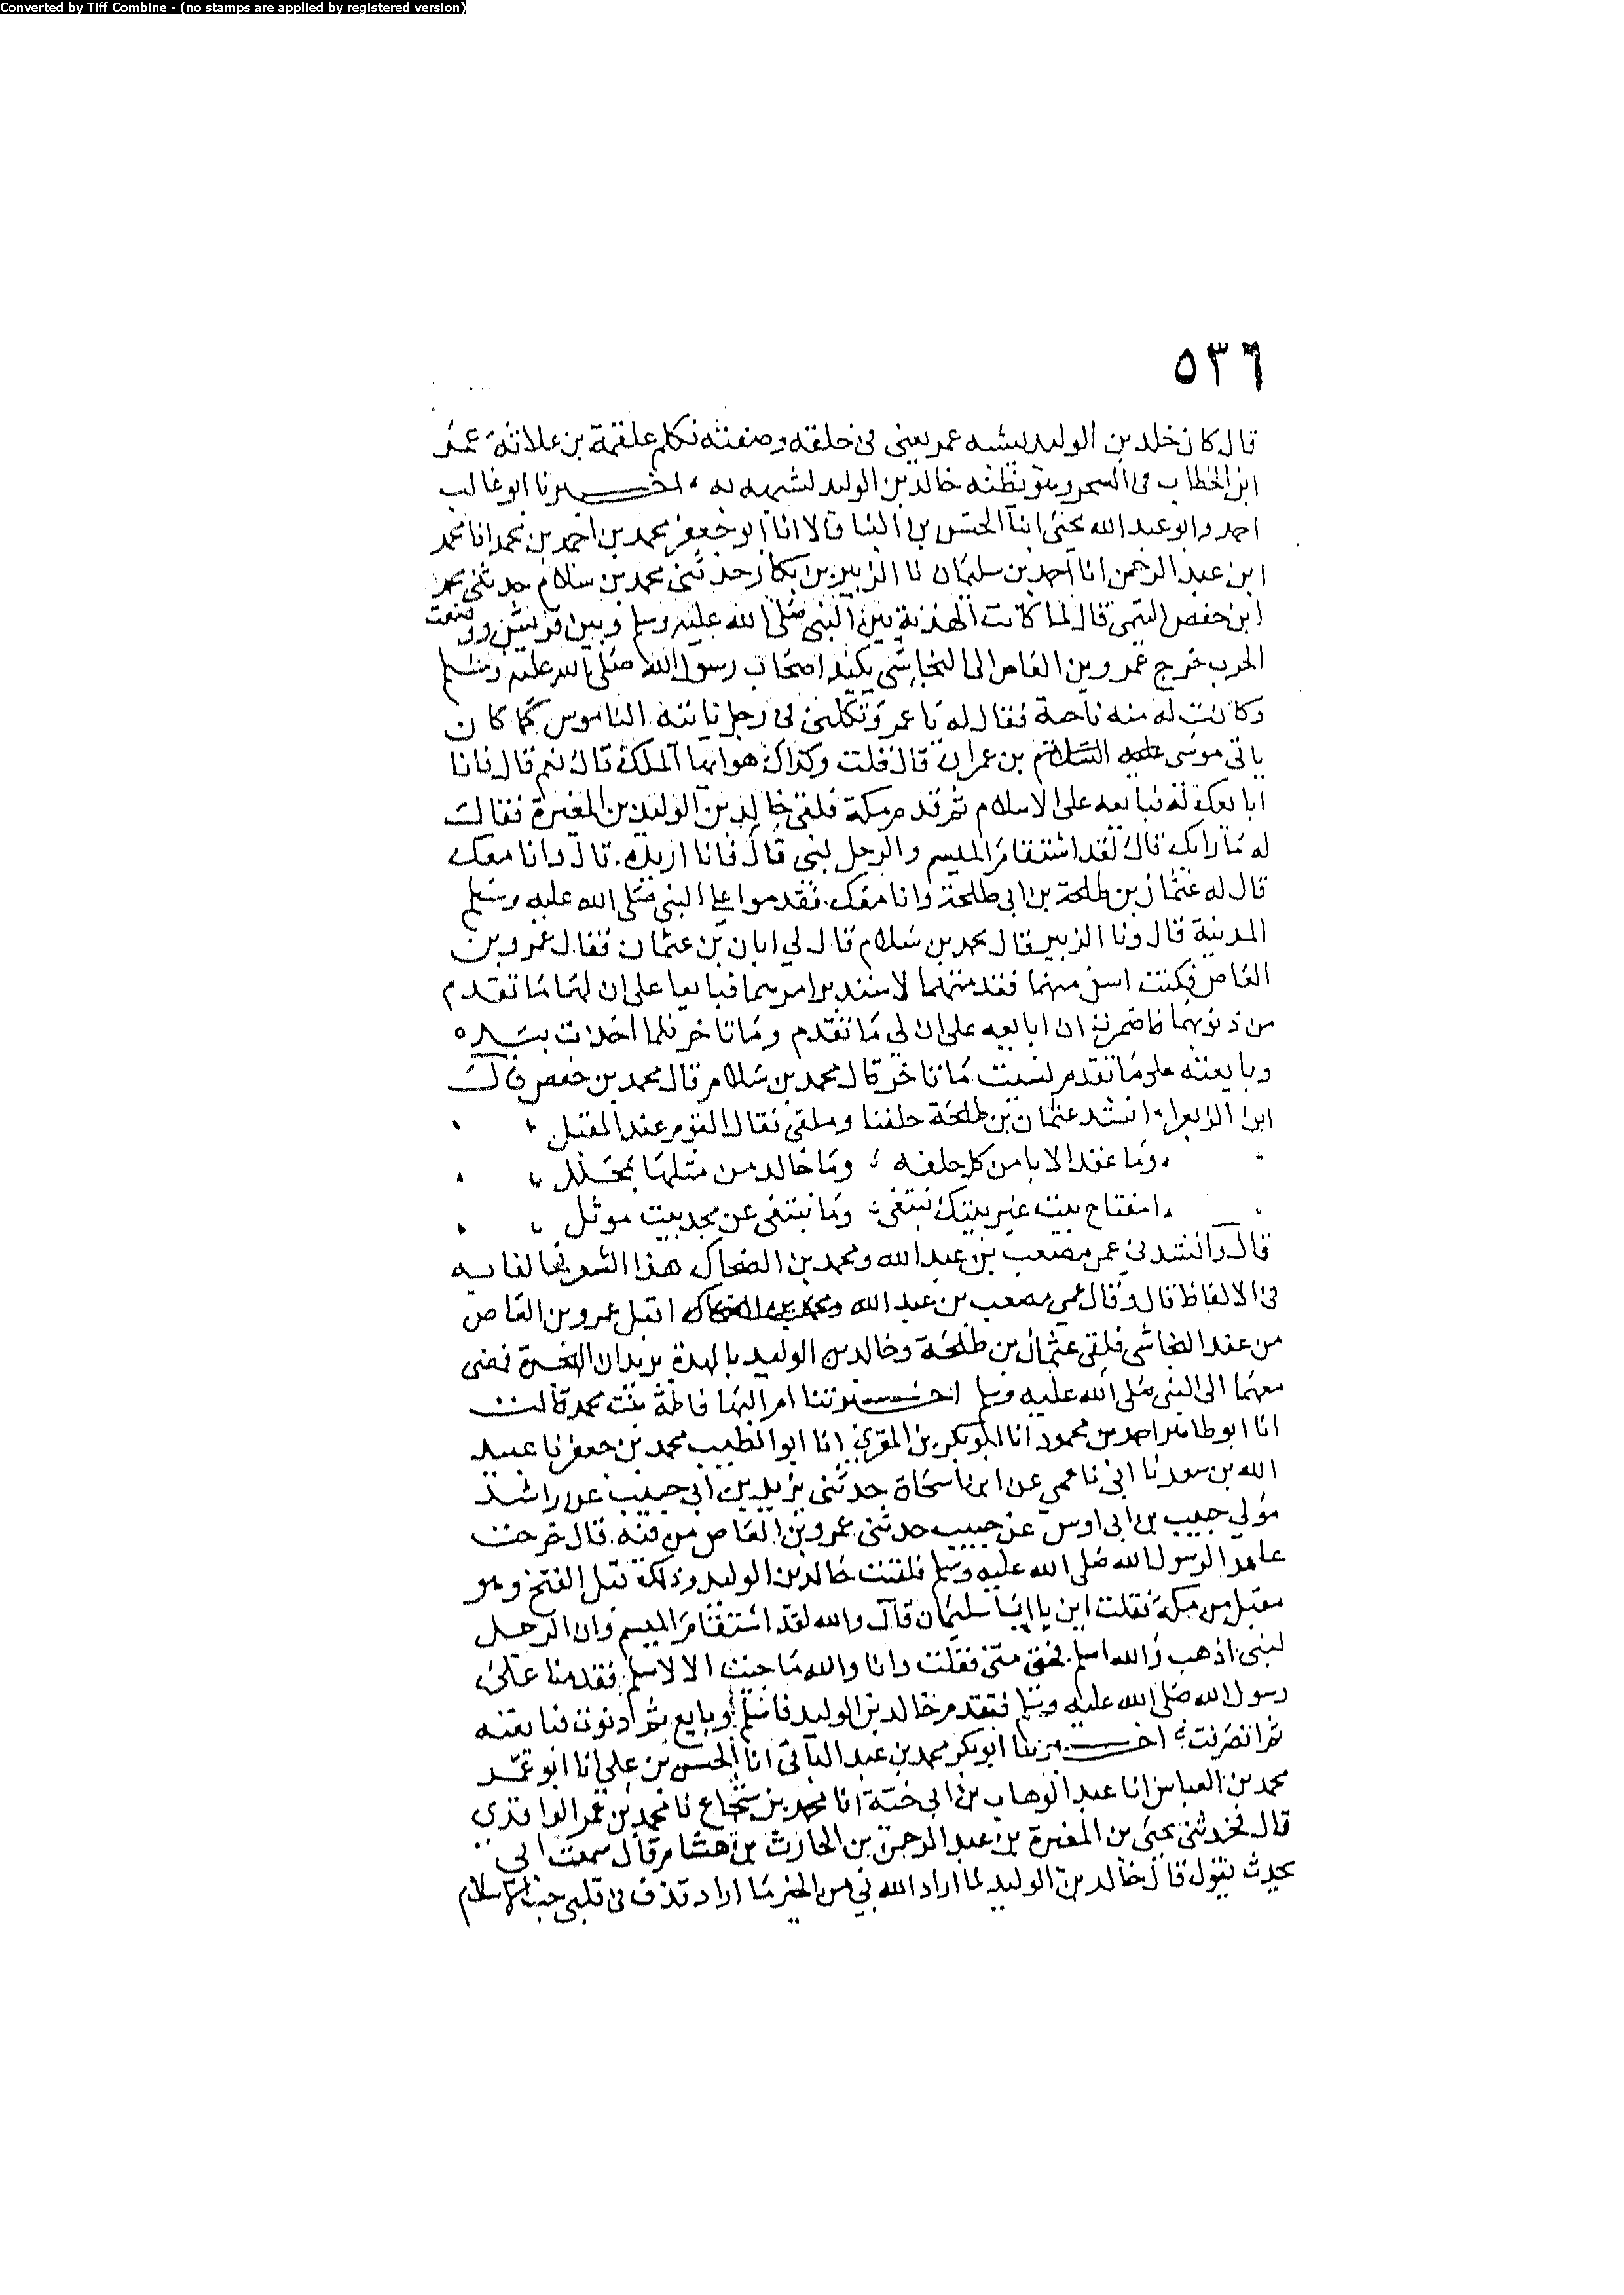 Converted by Tiff Combine - (no stamps are applied by registered version)
٥٣٦
قال كان خلد بن الوليد يشبه عمر يعني في خلقه وصفته فكلم علقمة بن علاثة عمر
ابن الخطاب في السحر وهو يظنه خالد بن الوليد لشبهه به اخبرنا ابو غالب
احمد وابو عبد الله يحيى ابنا الحسن بن البنا قالا انا ابو جعفر محمد بن احمد بن محمد انا محمد
ابن عبد الرحمن انا احمد بن سليمان نا الزبير بن بكار حدثني محمد بن سلام حدثني محمد
ابن حفص التيمي قال لما كانت الهدنة بين النبي صلى الله عليه وسلم وبين قريش ووضعت
الحرب خرج عمرو بن العاص الى النجاشي يكيد اصحاب رسول الله صلى الله عليه وسلم
وكانت له منه ناحية فقال له يا عمرو تكلمني في رجل ياتيه الناموس كما كان
ياتي موسى عليه السلام بن عمران قال قلت وكذاك هو ايها الملك قال نعم قال فانا
ابايعك له فبايعه على الاسلام ثم قدم مكة فلقي خالد بن الوليد بن المغيرة فقال
له ما رايك قال لقد استقام الميسم والرجل نبي قال فانا اريده قال وانا معك
قال له عثمان بن طلحة بن ابي طلحة وانا معك فقدموا على النبي صلى الله عليه وسلم
المدينة قال ونا الزبير قال محمد بن سلام قال لي ابان بن عثمان فقال عمرو بن
العاص فكنت اسن منهما فقدمتهما لاستدبر امرهما فبايعا على ان لهما ما تقدم
من ذنوبهما فاضمرت ان ابايعه على ان لي ما تقدم وما تاخر فلما اخذت بيده
وبايعته على ما تقدم نسيت ما تاخر قال محمد بن سلام قال محمد بن حفص قال
ابن الزبعرا انشد عثمان بن طلحة حلفنا وملقى نعال القوم عند المقبل
وما عقد الابا من كل حلفه وما خالد من مثلها بمحلل
امفتاح بيت غير بيتك تبتغي وما تبتغي عن مجد بيت موثل
قال وانشدني عمي مصعب بن عبد الله ومحمد بن الضحاك هذا الشعر فخالفا فيه
في الالفاظ قال وقال عمي مصعب بن عبد الله ومحمد بن الضحاك اقبل عمرو بن العاص
من عند النجاشي فلقي عثمان بن طلحة وخالد بن الوليد بالهدة يريدان الهجرة فمضى
معهما الى النبي صلى الله عليه وسلم اخبرتنا ام البها فاطمة بنت محمد قالت
انا ابو طاهر احمد بن محمود انا ابو بكر بن المقرئ انا ابو الطيب محمد بن جعفر نا عبيد
الله بن سعد نا ابي نا عمي عن ابن اسحاق حدثني يزيد بن ابي حبيب عن راشد
مولى حبيب بن ابي اوس عن حبيب حدثني عمرو بن العاص من فيه قال خرجت
عامدا لرسول الله صلى الله عليه وسلم فلقيت خالد بن الوليد وذلك قبل الفتح وهو
مقبل من مكة فقلت اين يا ابا سليمان قال والله لقد استقام الميسم وان الرجل
لنبي اذهب والله اسلم فحتى متى فقلت وانا والله ما جيت الا لاسلم فقدمنا على
رسول الله صلى الله عليه وسلم فتقدم خالد بن الوليد فاسلم وبايع ثم دنوت فبايعته
ثم انصرفت اخبرنا ابو بكر محمد بن عبد الباقي انا الحسن بن علي انا ابو عمر
محمد بن العباس انا عبد الوهاب بن ابي حية انا محمد بن شجاع نا محمد بن عمر الواقدي
قال فحدثني يحيى بن المغيرة بن عبد الرحمن بن الحارث بن هشام قال سمعت ابي
يحدث يقول قال خالد بن الوليد لما اراد الله بي من الخير ما اراد قذف في قلبي حب الاسلام